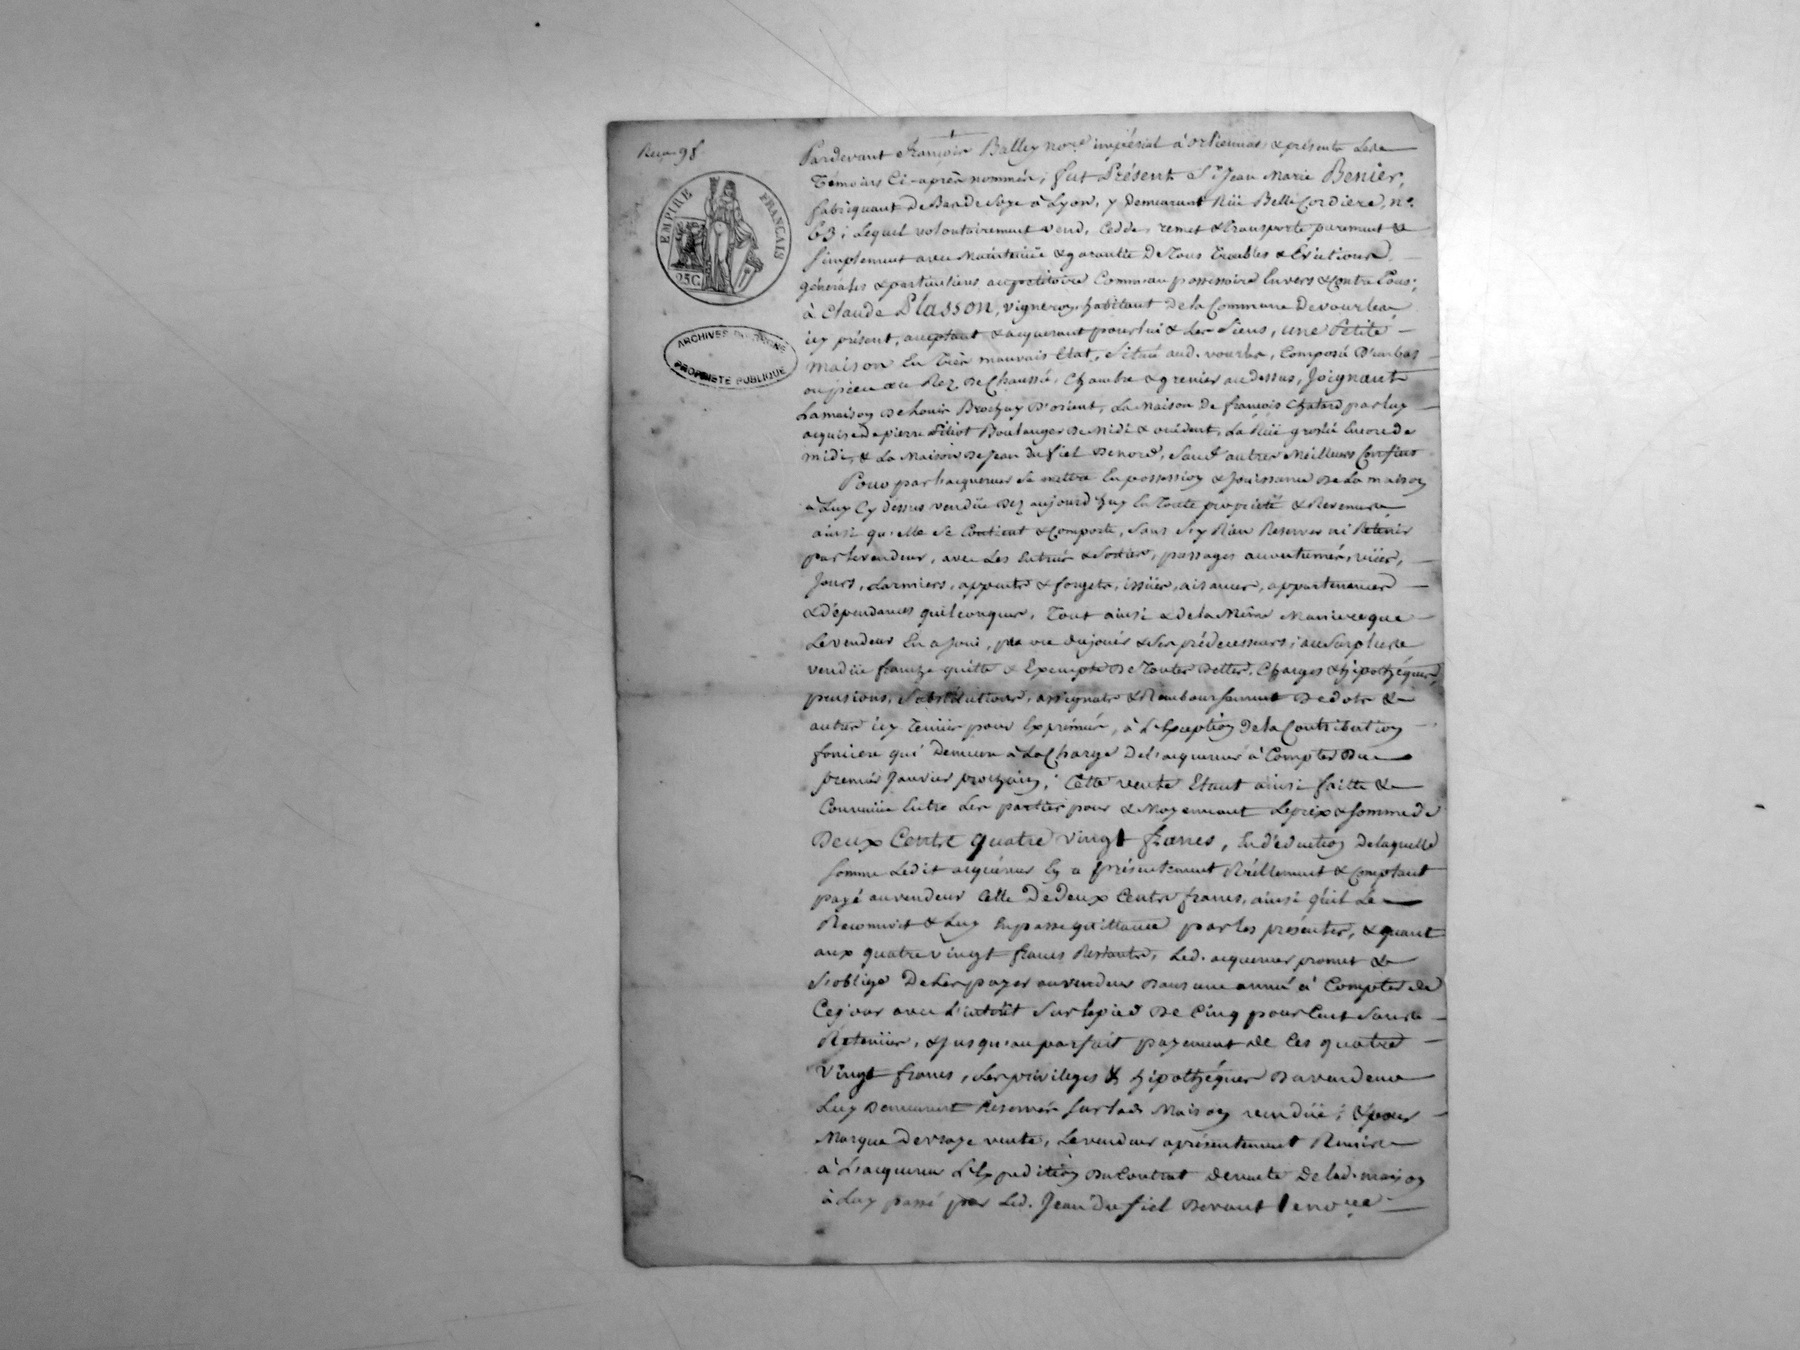 Reçu 9 f
EMPIRE FRANÇAIS
25C
ARCHIVES DU RHÔNE
PROPRIÉTÉ PUBLIQUE
Pardevant françois Balley no.re impérial à orlienas & présents Les
Témoins Ci-après nommés; fut Présent S.r Jean Marie Benier,
fabriquant De Bas de Soye à Lyon, y Demeurant Rüe Belle Cordiere, n.o
63; Lequel volontairement vend, Cedde, remet & transporte purement &
simplement avec Maintenüe & garantie De Tous Troubles & Evictions
générales & particulieres au petitoire Comme au possessoire Envers & Contre Tous;
à Claude Plasson, vigneron habitant de la Commune De vourles
icy présent, acceptant & acquerant pour lui & Les Siens, une Petite
maison En Très mauvais Etat, Située aud. vourles, Composée D'un bas
ou piece au Rez De Chaussée, Chambre & grenier au dessus, Joignant
La maison De Louis Brochay D'orient, La Maison De françois Chatard par luy
acquise De pierre Boulanger De Midi & occident, La Rüe Encore de
midi, & La Maison De Jean du fiel De nord, Sauf autres Meilleurs Confins
Pour par L'acquereur Se mettre En possession & Jouissance De La maison
à Luy Cy dessus vendüe Dez aujourd'huy En Toute propriété & Revenus
ainsi qu'elle Se Contient & Comporte, Sans S'y Rien Reserver ni Retenir
par Le vendeur, avec Les Entrées & Sorties, passages accoutumés, vües,
Jours, Larmiers, appents & forgets, issües, aisances, appartenances
& Dépendances quelconques, Tout ainsi & de la Même Maniere que
Le vendeur En a Joui, pu ou du joüir & Ses prédecesseurs; au Surplus
vendüe franche quitte & Exempte De Toutes Dettes, Charges & hipothéques,
pensions, Substitutions, assignats & Remboursement De dots &
autres icy Tenües pour Exprimées, à L'Exception De la Contribution
fonciere qui Demeure à La Charge De L'acquereur à Compter Du
premier Janvier prochain; Cette vente Etant ainsi faitte &
Convenüe Entre Les parties pour & Moyennant Le prix & somme de
Deux Cents quatre vingt francs, En déduction De laquelle
somme Ledit acquéreur En a présentement Réellement & Comptant
payé au vendeur Celle De deux Cents francs, ainsi qu'il Le
Reconnoit & Luy En passe quittance par les présentes, & quant
aux quatre vingt francs Restants, Led. acquereur promet &
s'oblige De Les payer au vendeur Dans une année à Compter de
Ce jour avec L'intérêt Sur Le pied De Cinq pour Cent Sans
Retenüe, & Jusqu'au parfait payement de Ces quatre
vingt francs, Les privileges & hipothéques Du vendeur
Luy Demeurent Reservés sur lad. Maison vendüe; & pour
Marque De vraye vente, Le vendeur a présentement Remis
à L'acquereur L'Expedition Du Contrat De vente De lad. maison
à Luy passé par Led. Jean Du fiel Devant Le no.re